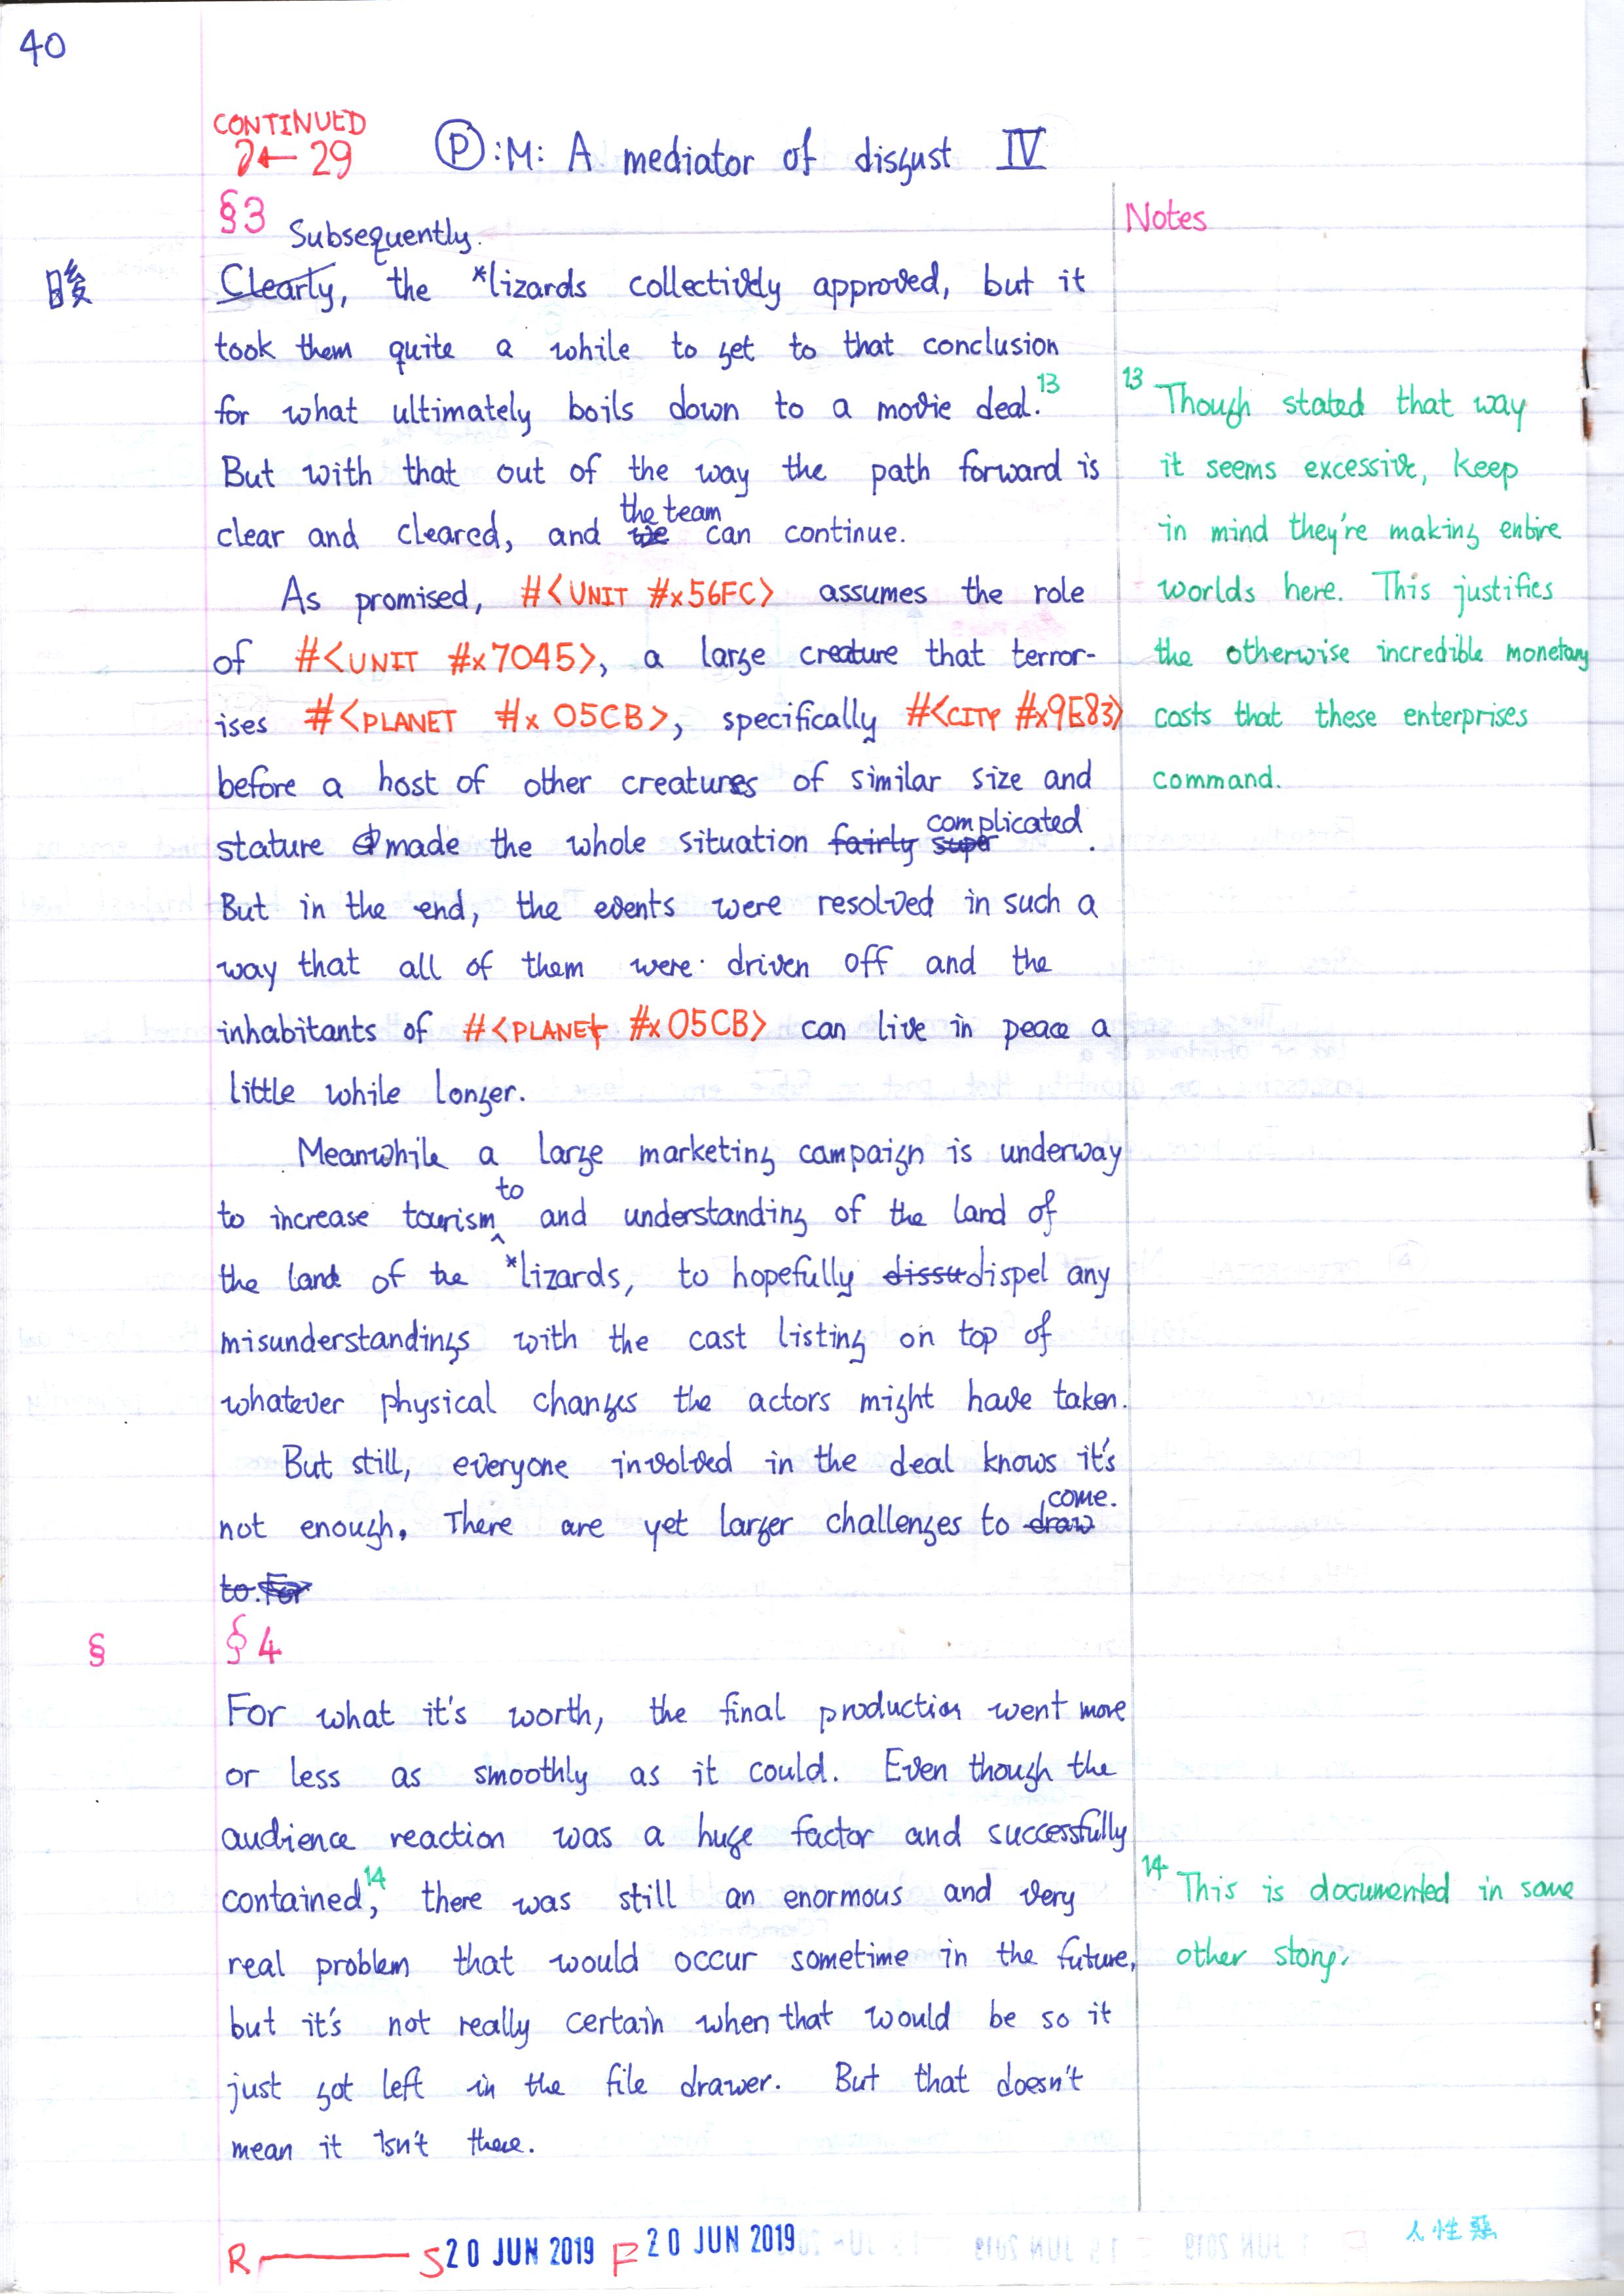 40
CONTINUED
← 29
Ⓟ:M: A mediator of disgust IV
§3
Notes
Subsequently.
Clearly, the *lizards collectively approved, but it
took them quite a while to get to that conclusion
for what ultimately boils down to a movie deal.13
But with that out of the way the path forward is
the team
clear and cleared, and we can continue.
As promised, #<UNIT #x56FC> assumes the role
of #<UNIT #x7045>, a large creature that terror-
ises #<PLANET #x05CB>, specifically #<CITY #x9E83>
before a host of other creatures of similar size and
complicated
stature made the whole situation fairly super.
But in the end, the events were resolved in such a
way that all of them were driven off and the
inhabitants of #<PLANET #x05CB> can live in peace a
little while longer.
Meanwhile a large marketing campaign is underway
to
to increase tourism ^ and understanding of the land of
the land of the *lizards, to hopefully dissu dispel any
misunderstandings with the cast listing on top of
whatever physical changes the actors might have taken.
But still, everyone involved in the deal knows it's
come.
not enough. There are yet larger challenges to draw
to. For
§ §4
For what it's worth, the final production went more
or less as smoothly as it could. Even though the
audience reaction was a huge factor and successfully
contained,14 there was still an enormous and very
real problem that would occur sometime in the future,
but it's not really certain when that would be so it
just got left in the file drawer. But that doesn't
mean it isn't there.
13 Though stated that way
it seems excessive, keep
in mind they're making entire
worlds here. This justifies
the otherwise incredible monetary
costs that these enterprises
command.
14 This is documented in some
other story.
R S 20 JUN 2019 F 20 JUN 2019
人性惡